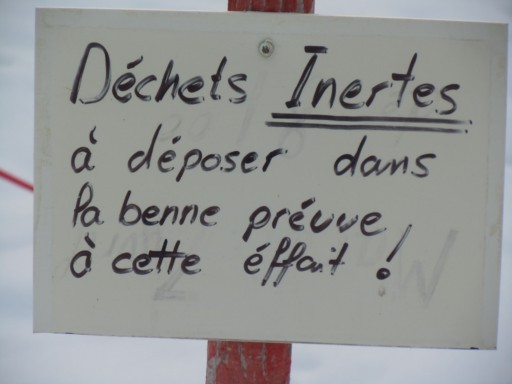 Déchets Inertes
à déposer dans
la benne prévue
à cette éffait !